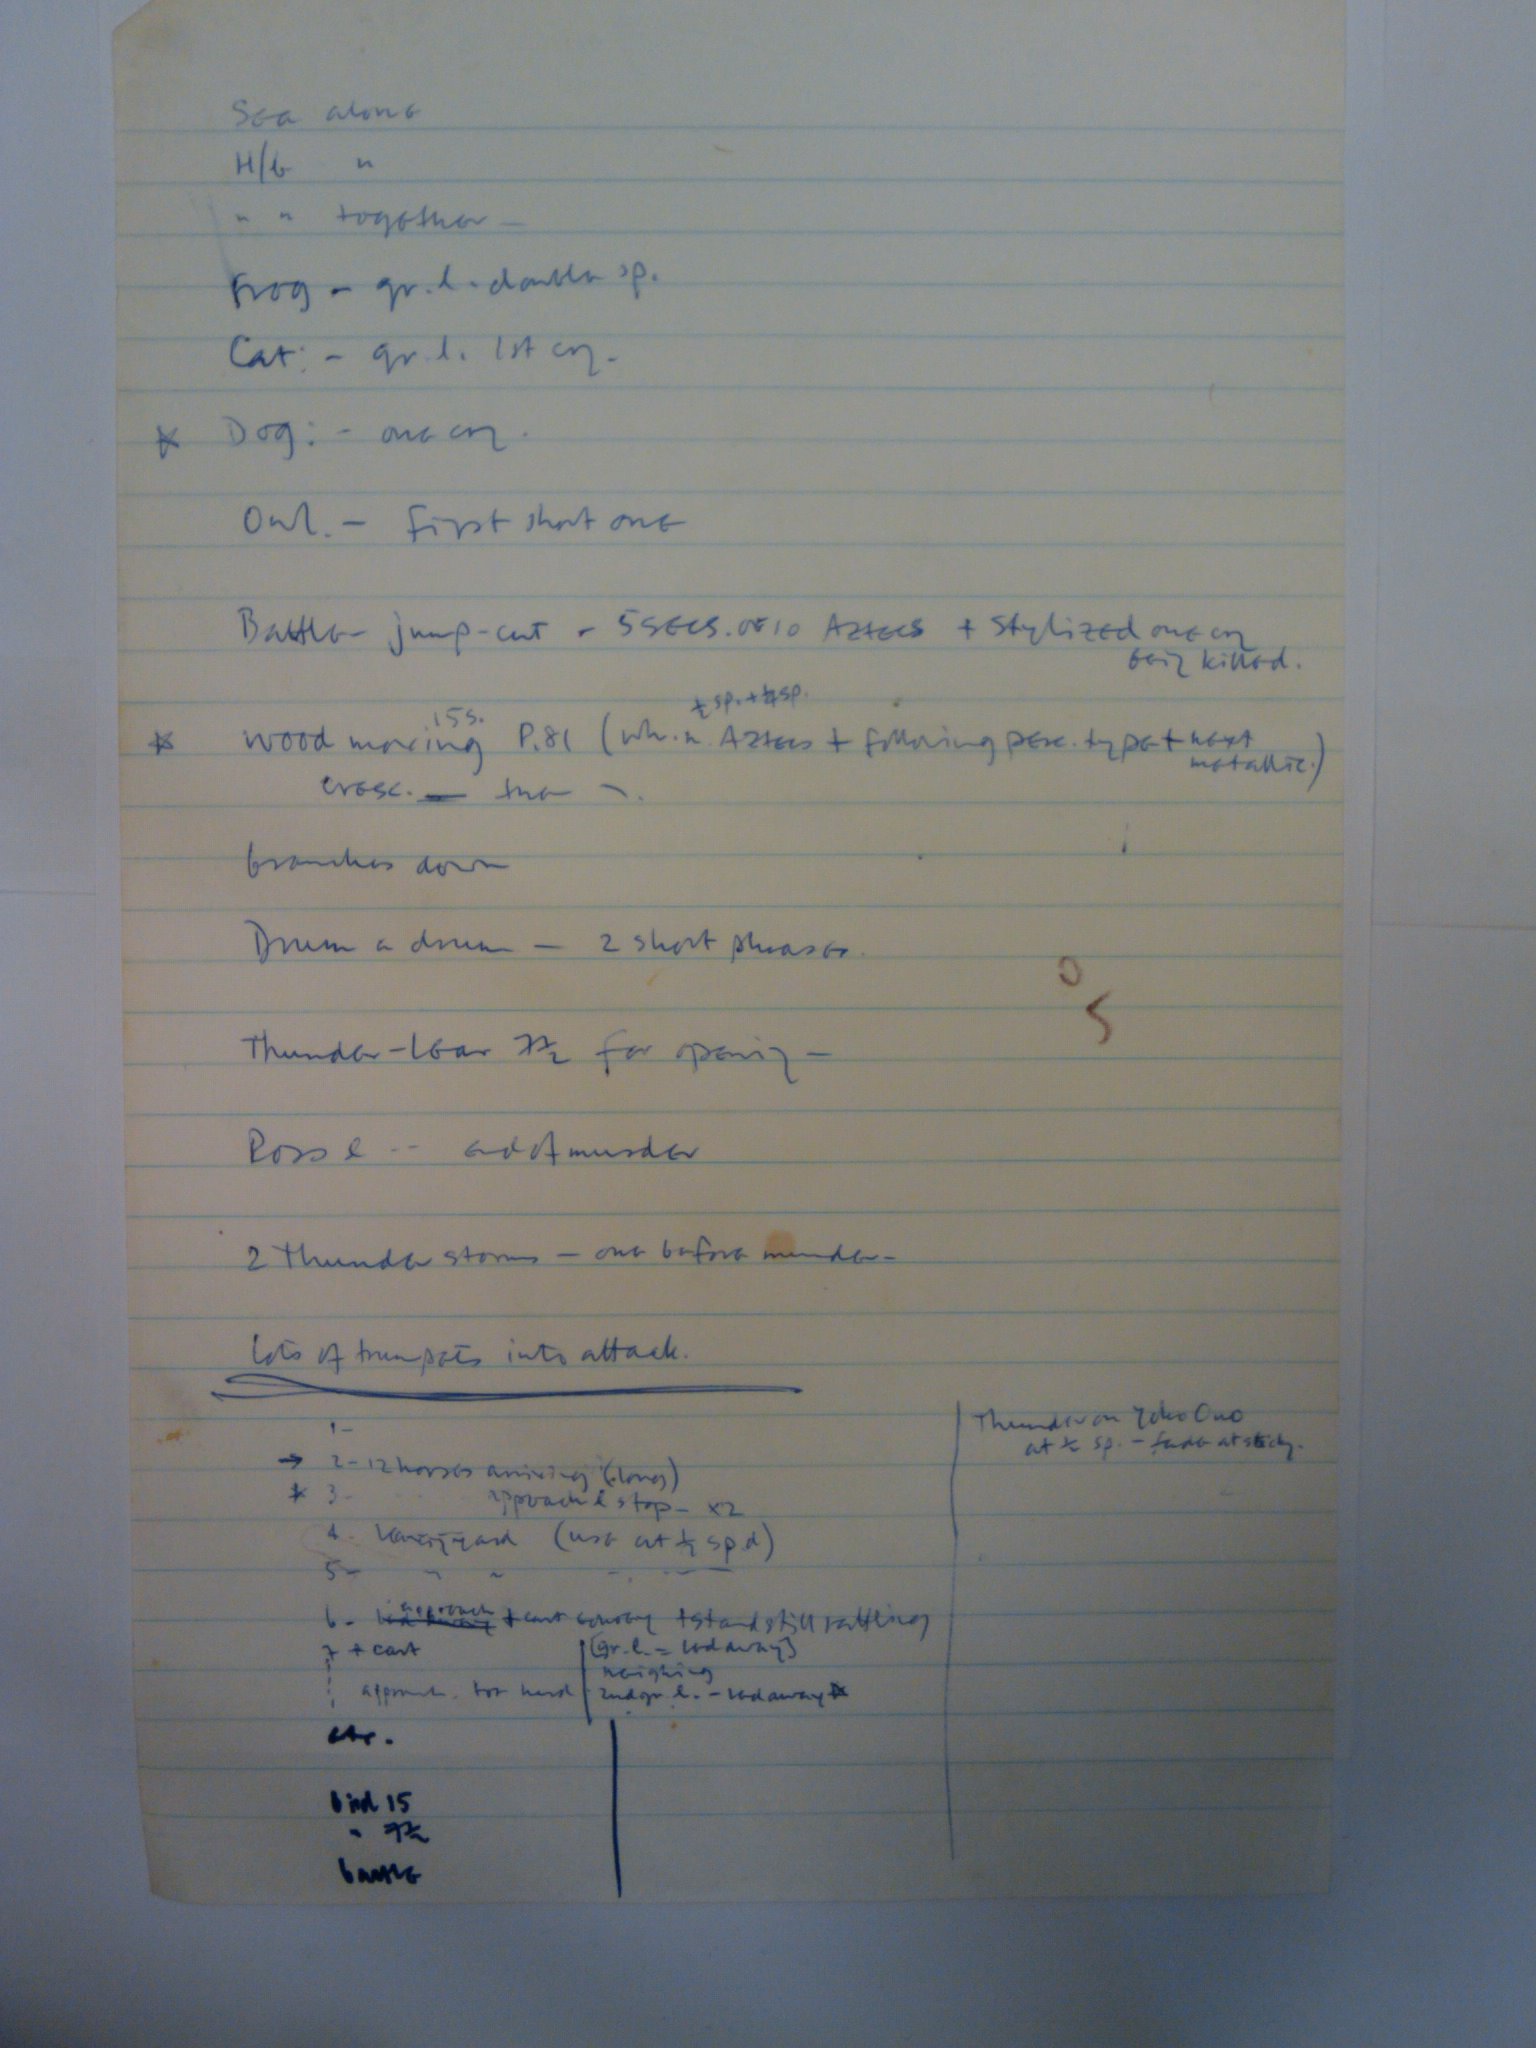 Sea alone
H/b "
" " together –
Frog – gr. l. double sp.
Cat: – gr. l. 1st cry.
* Dog: – one cry.
Owl. – first short one
Battle – jump-cut – 5 secs. of 10 Aztecs + stylized one cry
being killed.
½ sp. + ¼ sp.
15s.
* wood moving P.81 ( Aztecs + following perc. type + next
metallic.)
cresc. — then
branches down
Drum a drum – 2 short phrases.
Thunder – Lear 7½ for opening –
Ross l -- end of murder
2 Thunder storms – one before murder –
lots of trumpets into attack.
Thunder on Yoko Ono
at ½ sp. – fade at
1 –
→ 2 – 12 horses arriving (long)
* 3 – approach & stop – x2
4 – yard (use at ½ spd)
5 – " "
approach
6 – + cart + stand still rattling
7 + cart
[gr. l. = led away]
neighing
approach. too hard
2nd gr. l. – led away *
etc.
bird 15
" 7½
battle